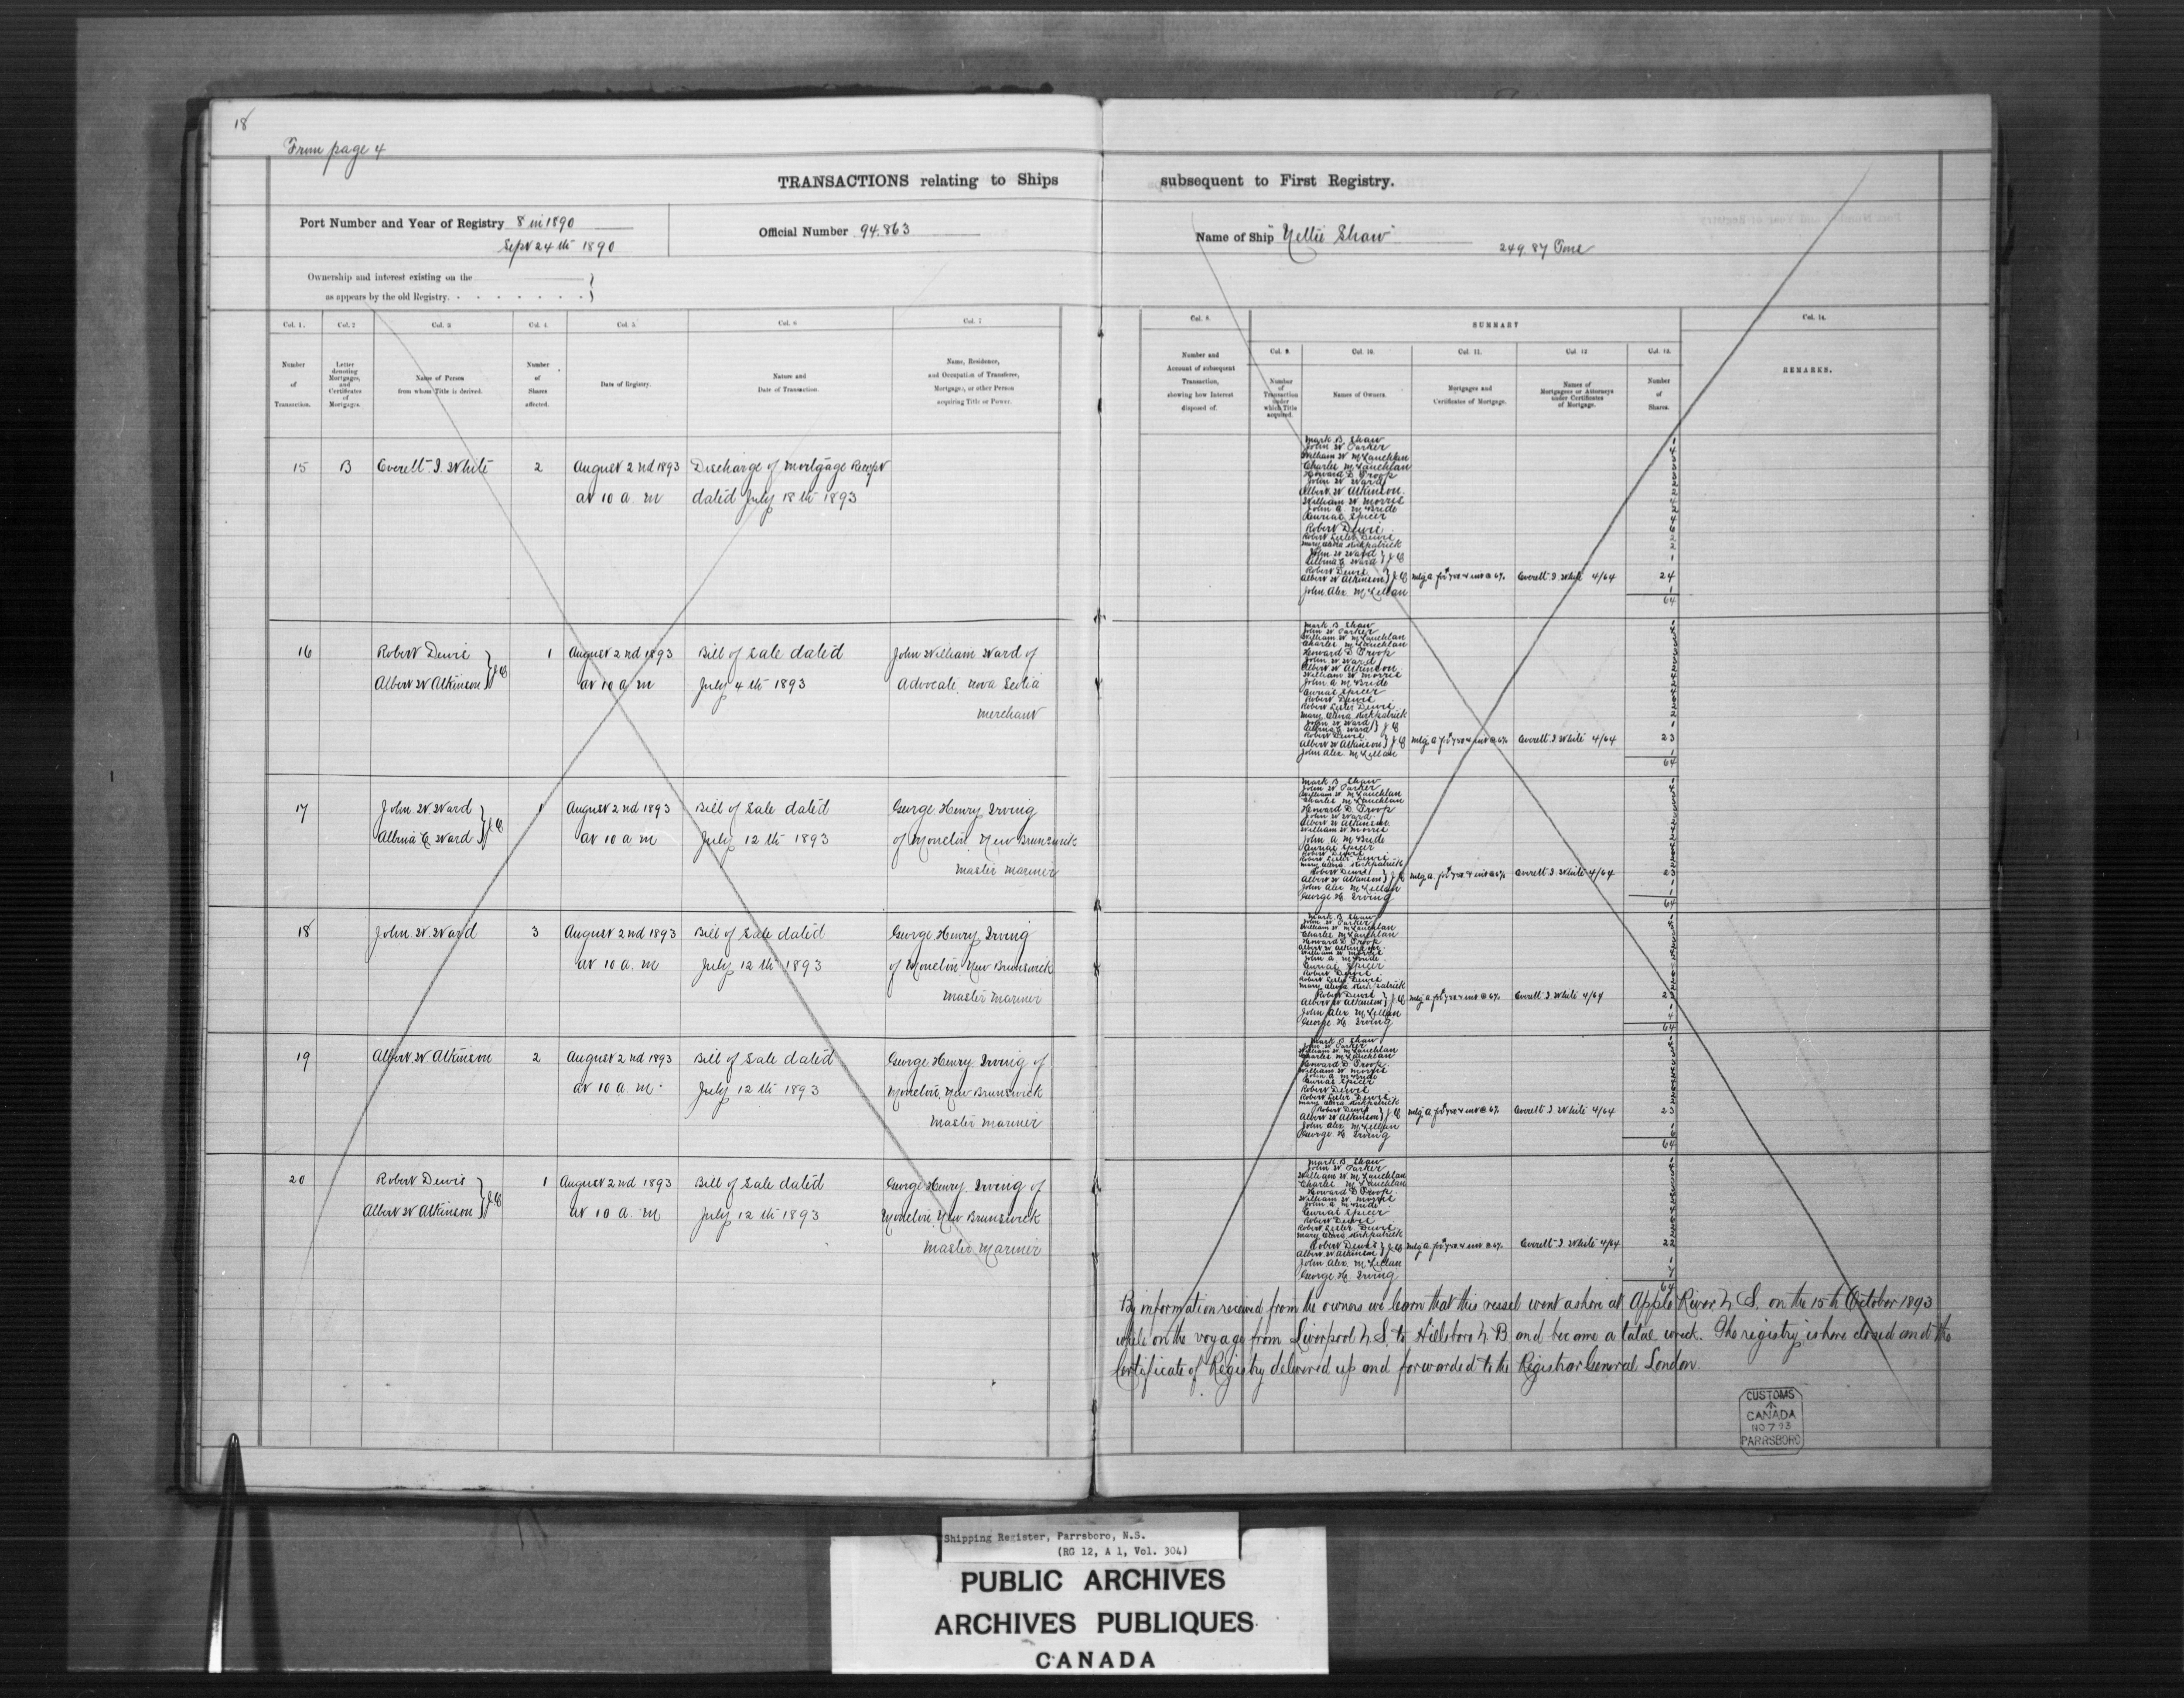 18
From page 4
TRANSACTIONS relating to Ships subsequent to First Registry.
Port Number and Year of Registry 8 in 1890
Sept 24th 1890
Official Number 94.863
Name of Ship "Nellie Shaw"
249.87 Tons
Ownership and interest existing on the
as appears by the old Registry.
Col. 1.
Number
of
Transaction.
Col. 2
Letter
denoting
Mortgages,
and
Certificates
of
Mortgages.
Col. 3
Name of Person
from whom Title is derived.
Col. 4.
Number
of
Shares
affected.
Col. 5.
Date of Registry.
Col. 6
Nature and
Date of Transaction.
Col. 7
Name, Residence,
and Occupation of Transferee,
Mortgagee, or other Person
acquiring Title or Power.
Col. 8.
Number and
Account of subsequent
Transaction,
showing how Interest
disposed of.
SUMMARY
Col. 9.
Number
of
Transaction
under
which Title
acquired.
Col. 10.
Names of Owners.
Col. 11.
Mortgages and
Certificates of Mortgage.
Col. 12
Names of
Mortgagees or Attorneys
under Certificates
of Mortgage.
Col. 13.
Number
of
Shares.
Col. 14.
REMARKS.
15 B Everett I. White 2 August 2nd 1893 Discharge of Mortgage Receipt
at 10 a. m dated July 18th 1893
Mark B. Shaw 1
John W Parker 4
William W McLauchlan 3
Charles McLauchlan 3
Howard D Troop
John W Ward
Albert W Atkinson 2
William W Morris 4
John A McBride 2
Aurial Spicer 4
Robert Dewis 6
Robert Lester Dewis 2
Mary Kirkpatrick 2
John W Ward } J.O
Albina E Ward } 1
Robert Dewis
Albert W Atkinson } J.O Mtg. A Everett I. White 4/64 24
John Alex McLellan 1
64
16 Robert Dewis 1 August 2nd 1893 Bill of Sale dated John William Ward of
Albert W Atkinson } J.O at 10 a m July 4th 1893 Advocate, Nova Scotia
Merchant
Mark B Shaw
John W Parker
William W McLauchlan
Charles McLauchlan
Howard D Troop
John W Ward
Albert W Atkinson
William W Morris
John A McBride
Aurial Spicer
Robert Dewis
Robert Lester Dewis
Mary Kirkpatrick
John W Ward
Albina E Ward } J.O 1
Robert Dewis
Albert W Atkinson } J.O Mtg. A Everett I. White 4/64 23
John Alex McLellan 1
64
17 John W Ward 1 August 2nd 1893 Bill of Sale dated George Henry Irving
Albina E Ward } J.O at 10 a m July 12th 1893 of Moncton, New Brunswick
Master Mariner
Mark B Shaw
John W Parker
William W McLauchlan
Charles McLauchlan
Howard D Troop
John W Ward
Albert W Atkinson
William W Morris
John A McBride
Aurial Spicer
Robert Dewis
Robert Lester Dewis
Mary Kirkpatrick
Robert Dewis
Albert W Atkinson } J.O Mtg. A Everett I. White 4/64 23
John Alex McLellan 1
George H Irving 1
64
18 John W Ward 3 August 2nd 1893 Bill of Sale dated George Henry Irving
at 10 a. m July 12th 1893 of Moncton New Brunswick
Master Mariner
Mark B Shaw
John W Parker
William W McLauchlan
Charles McLauchlan
Howard D Troop
Albert W Atkinson
William W Morris
John A McBride
Aurial Spicer
Robert Dewis
Robert Lester Dewis
Mary Kirkpatrick
Robert Dewis
Albert W Atkinson } J.O Mtg. A Everett I. White 4/64 23
John Alex McLellan 1
George H. Irving 4
64
19 Albert W Atkinson 2 August 2nd 1893 Bill of Sale dated George Henry Irving of
at 10 a. m. July 12th 1893 Moncton, New Brunswick
Master Mariner
Mark B Shaw
John W Parker
William W McLauchlan
Charles McLauchlan
Howard D Troop
William W Morris
John A McBride
Aurial Spicer
Robert Dewis
Robert Lester Dewis
Mary Kirkpatrick
Robert Dewis
Albert W Atkinson } J.O Mtg. A Everett I. White 4/64 23
John Alex McLellan 1
George H Irving 6
64
20 Robert Dewis 1 August 2nd 1893 Bill of Sale dated George Henry Irving of
Albert W Atkinson } J.O at 10 a. m July 12th 1893 Moncton New Brunswick
Master Mariner
Mark B Shaw
John W Parker
William W McLauchlan
Charles McLauchlan
Howard D Troop
William W Morris
John A McBride
Aurial Spicer
Robert Dewis
Robert Lester Dewis
Mary Kirkpatrick
Robert Dewis
Albert W Atkinson } J.O Mtg. A Everett I. White 4/64 22
John Alex. McLellan 1
George H Irving 7
64
By information received from the owners we learn that this vessel went ashore at Apple River N. S. on the 15th October 1893
while on the voyage from Liverpool N.S. to Hillsboro N. B and became a total wreck. The registry is here closed and the
Certificate of Registry delivered up and forwarded to the Registrar General London.
CUSTOMS
CANADA
NO 793
PARRSBORO
Shipping Register, Parrsboro, N.S.
(RG 12, A 1, Vol. 304)
PUBLIC ARCHIVES
ARCHIVES PUBLIQUES
CANADA